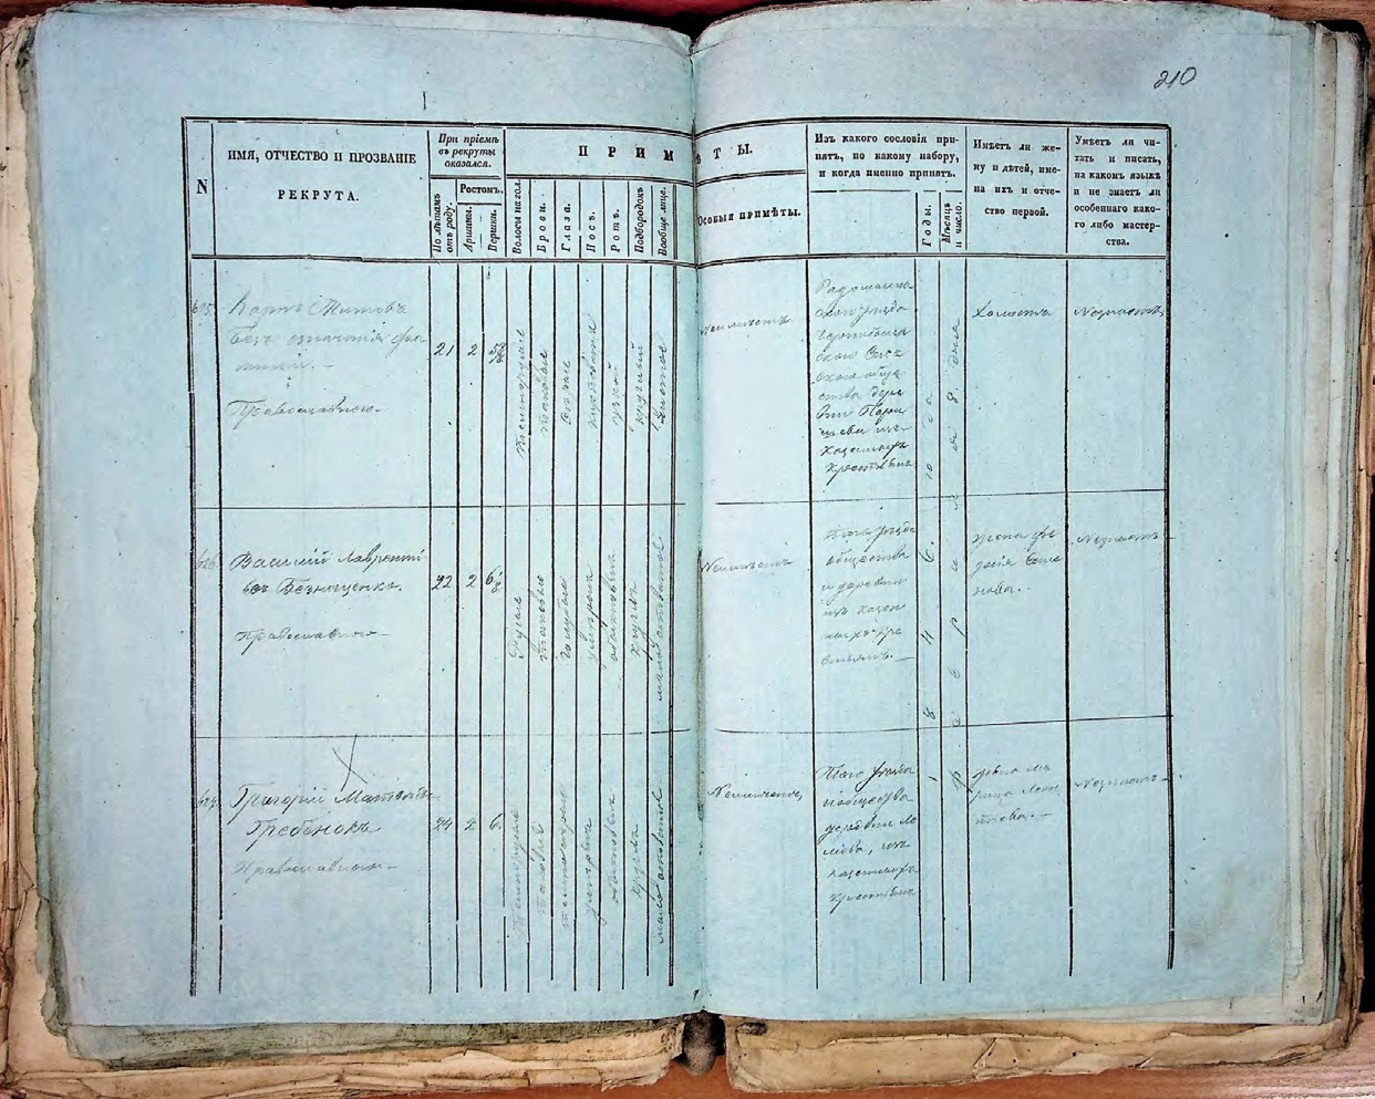 210
N
ИМЯ, ОТЧЕСТВО И ПРОЗВАНІЕ
РЕКРУТА.
При пріемѣ
въ рекруты
оказался.
По лѣтамъ
отъ роду.
Ростомъ.
Аршины.
Вершки.
ПРИМѢТЫ.
Волосы на гол.
Брови.
Глаза.
Носъ.
Ротъ.
Подбородокъ
Вообще лице.
Особыя примѣты.
Изъ какого сословія при-
нятъ, по какому набору,
и когда именно принятъ.
Годы.
Мѣсяцъ
и число.
Имѣетъ ли же-
ну и дѣтей, име-
на ихъ и отче-
ство первой.
Умѣетъ ли чи-
тать и писать,
на какомъ языкѣ
и не знаетъ ли
особеннаго како-
го либо мастер-
ства.
625.
Карпъ Титовъ
Безъ означенія фа-
миліи.
Православнаго.
21
2
темнорусые
таковые
сѣрые
узкой
круглый
чистое
Неимѣетъ
уѣзда
скаго Сель
скаго обще
ства дере
вни
изъ
казенныхъ
крестьянъ
Холостъ
Незнаетъ
626.
Василій Лавренті
евъ Безнощенко.
Православнаго
22
2
6
Русые
таковые
голубые
умѣренъ
обыкновенъ
круглъ
малоостоватое
Неимѣетъ
того уѣзда
общества
и деревни
изъ казен
ныхъ кре
стьянъ.
жена
Семе
нова.
Незнаетъ
627.
Григорій Матвѣевъ
Гребенюкъ
Православнаго
24
2
6.
Темнорусые
таковые
темносѣрые
умѣренъ
обыкновенъ
круглъ
Неимѣетъ
Того уѣзда
и общества
деревни
изъ
казенныхъ
крестьянъ
жена
Незнаетъ